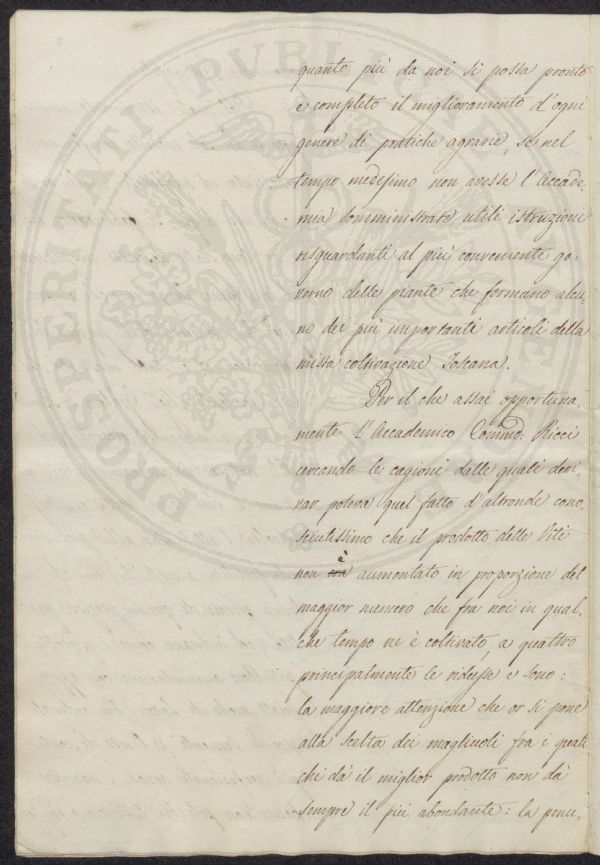 quanto più da noi si possa pronto
e completo il miglioramento d'ogni
genere di pratiche agrarie, se nel
tempo medesimo non avesse l'Accade-
mia somministrate utili istruzioni
risguardanti al più conveniente go-
verno delle piante che formano alcu-
no dei più importanti articoli della
mista coltivazione Toscana.
Per il che assai opportuna-
mente l'Accademico Commd. Ricci
cercando le cagioni dalle quali deri-
var poteva quel fatto d'altronde cono-
sciutissimo che il prodotto delle Viti
non è aumentato in proporzione del
maggior numero che fra noi in qual-
che tempo ne è coltivato, a quattro
principalmente le ridusse e sono:
la maggiore attenzione che or si pone
alla scelta dei magliuoli fra i quali
chi dà il miglior prodotto non dà
sempre il più abondante: la penu-
PROSPERITATI PVBLI